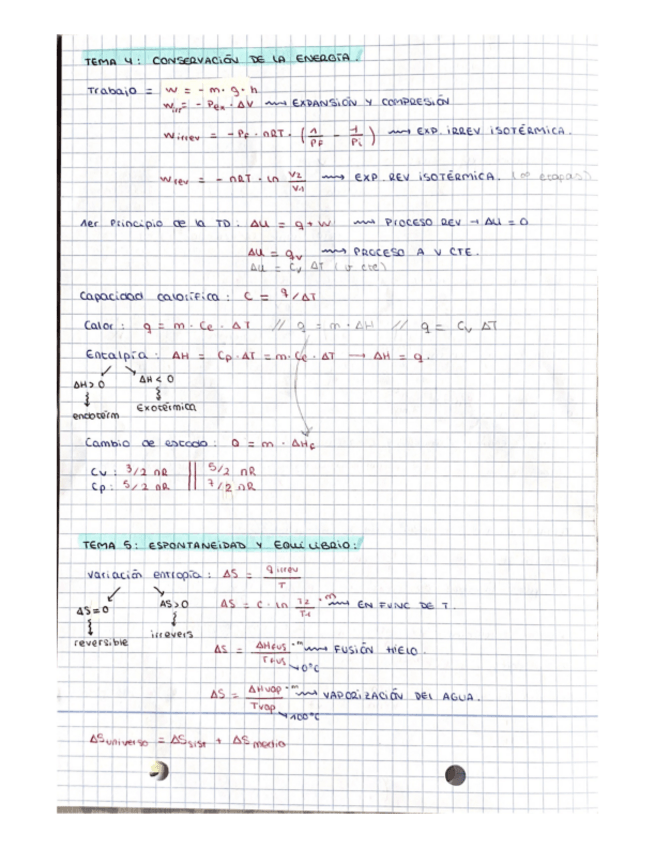 TEMA 4: CONSERVACIÓN DE LA ENERGÍA.
Trabajo = W = - m · g · h
Wirr = - Pex · ΔV ⟿ EXPANSIÓN Y COMPRESIÓN
Wirrev = - PF · nRT · (1/PF - 1/Pi) ⟿ EXP. IRREV ISOTÉRMICA.
Wrev = - nRT · ln V2/V1 ⟿ EXP. REV ISOTÉRMICA. (∞ etapas)
1er Principio de la TD: ΔU = q + W ⟿ PROCESO REV → ΔU = 0
ΔU = qv ⟿ PROCESO A V CTE.
ΔU = Cv ΔT (v cte)
Capacidad calorífica: C = q/ΔT
Calor: q = m · Ce · ΔT // q = m · ΔH // q = Cv ΔT
Entalpía: ΔH = Cp · ΔT = m · Ce · ΔT → ΔH = q.
ΔH > 0 ΔH < 0
endotérm Exotérmica
Cambio de estado: Q = m · ΔHc
Cv: 3/2 nR || 5/2 nR
Cp: 5/2 nR || 7/2 nR
TEMA 5: ESPONTANEIDAD Y EQUILIBRIO:
Variación entropía: ΔS = qirrev/T
ΔS = 0 ΔS > 0 ΔS = C · ln T2/T1 · m ⟿ EN FUNC DE T.
reversible irrevers
ΔS = ΔHfus/Tfus · m ⟿ FUSIÓN HIELO.
→ 0°C
ΔS = ΔHvap/Tvap · m ⟿ VAPORIZACIÓN DEL AGUA.
→ 100°C
ΔSuniverso = ΔSsist + ΔSmedio